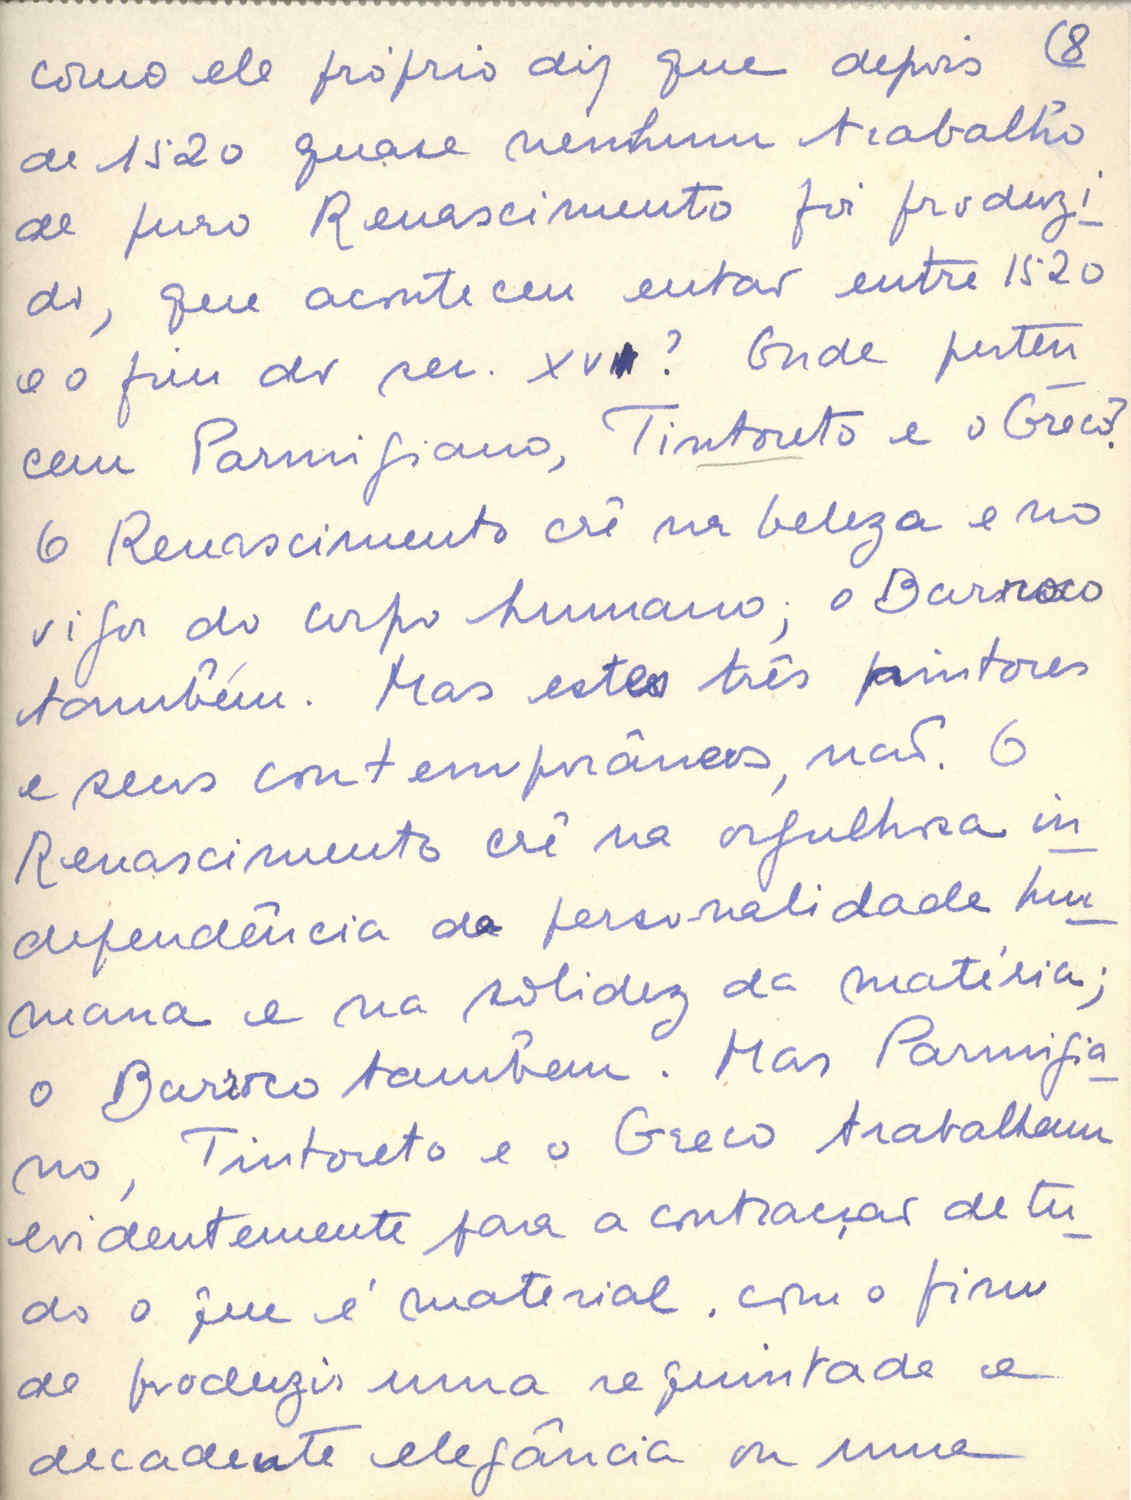 como ele próprio diz que depois (8
de 1520 quase nenhum trabalho
de puro Renascimento foi produzi
do, que aconteceu entao entre 1520
e o fim do sec. XVI? Onde perten
cem Parmigiano, Tintoreto e o Greco?
O Renascimento crê na beleza e no
vigor do corpo humano; o Barroco
tambêm. Mas estes três pintores
e seus contemporâneos, naõ. O
Renascimento crê na orgulhosa in
dependência da personalidade hu
mana e na sôlidez da matéria;
o Barroco tambêm. Mas Parmigia
no, Tintoreto e o Greco trabalham
evidentemente para a contracçao de tu
do o que é material, com o fim
de produzir uma requintada e
decadente elegância ou uma